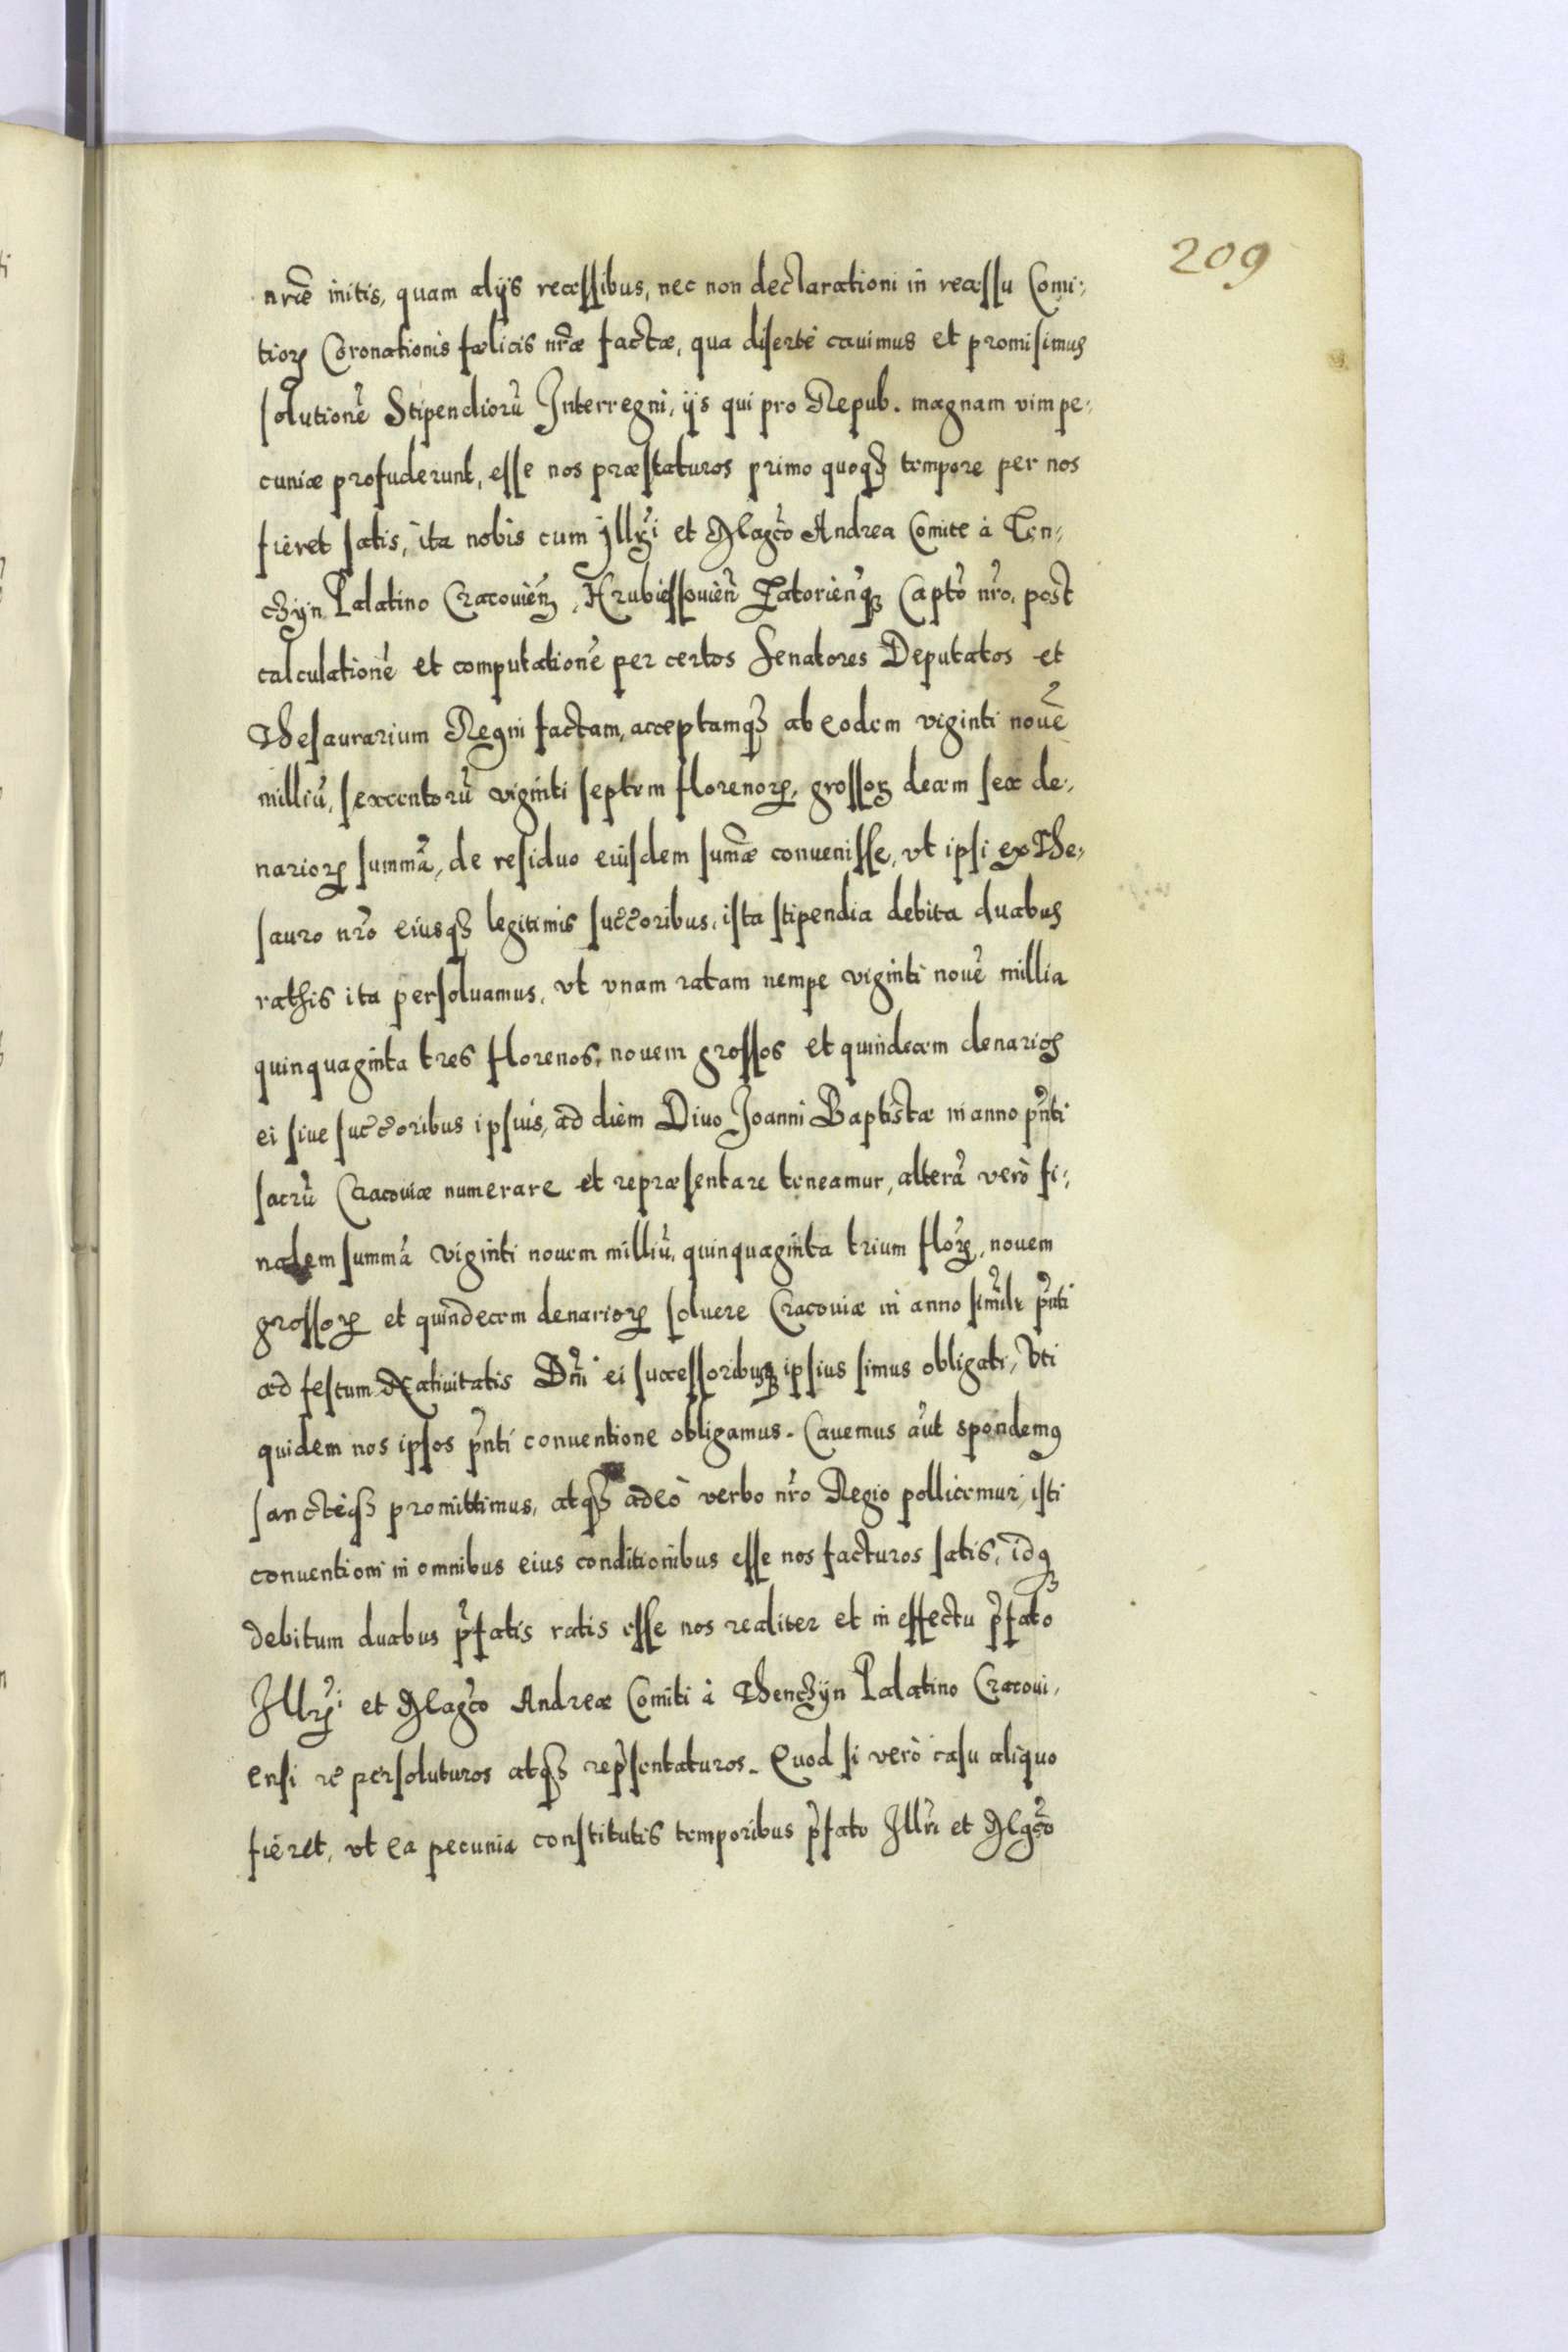 209
nrãe initis, quam alijs recessibus, nec non declarationi in recessu Comi:
tioꝝ Coronationis fœlicis nr̃æ factæ, qua diserté cauimus et promisimus
solutionẽ Stipendiorũ Interregni, ijs qui pro Repub. magnam vim pe:
cuniæ profuderunt, esse nos præstaturos primo quoqꝫ tempore per nos
fieret satis, ita nobis cum Illr̃i et Magc̃o Andrea Comite à Ten:
chyn Palatino Cracouien̄, Hrubiessouien̄ Zatorien̄qꝫ Captõ nr̃o, post
calculationẽ et computationẽ per certos Senatores Deputatos et
Thesaurarium Regni factam, acceptamqꝫ ab eodem viginti nouẽ
milliũ, sexcentorũ viginti septem florenorꝝ, grossoꝝ decem sex de:
narioꝝ summã, de residuo eiusdem sum̃æ conuenisse, vt ipsi ex The:
sauro nr̃o eiusqꝫ legitimis succ̃oribus, ista stipendia debita duabus
rathis ita persoluamus, vt vnam ratam nempe viginti nouẽ millia
quinquaginta tres florenos, nouem grossos et quindecem denarios
ei siue succ̃oribus ipsius, ad diem Diuo Joanni Baptistæ in anno pñti
sacrũ Cracouiæ numerare et repræsentare teneamur, alterã verò fi:
nalem summã viginti nouem milliũ, quinquaginta trium floꝝ, nouem
grossoꝝ et quindecem denarioꝝ soluere Cracouiæ in anno simĩlr pñti
ad festum Natiuitatis Dñi ei successoribusqꝫ ipsius simus obligati, Vti
quidem nos ipsos pñti conuentione obligamus. Cauemus aũt spondemꝰ
sanctèqꝫ promittimus, atqꝫ adeò verbo nr̃o Regio pollicemur, isti
conuentioni in omnibus eius conditionibus esse nos facturos satis, idqꝫ
debitum duabus p̃fatis ratis esse nos realiter et in effectu p̃fato
Illr̃i et Magc̃o Andreæ Comiti à Thenchyn Palatino Cracoui:
ensi re persoluturos atqꝫ rep̃sentaturos. Quod si verò casu aliquo
fieret, vt ea pecunia constitutis temporibus p̃fato Illr̃i et Mgc̃o